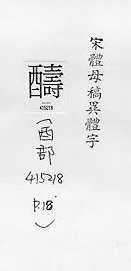 宋體母稿異體字
醻
415218
(酉部
415218
P.18
)